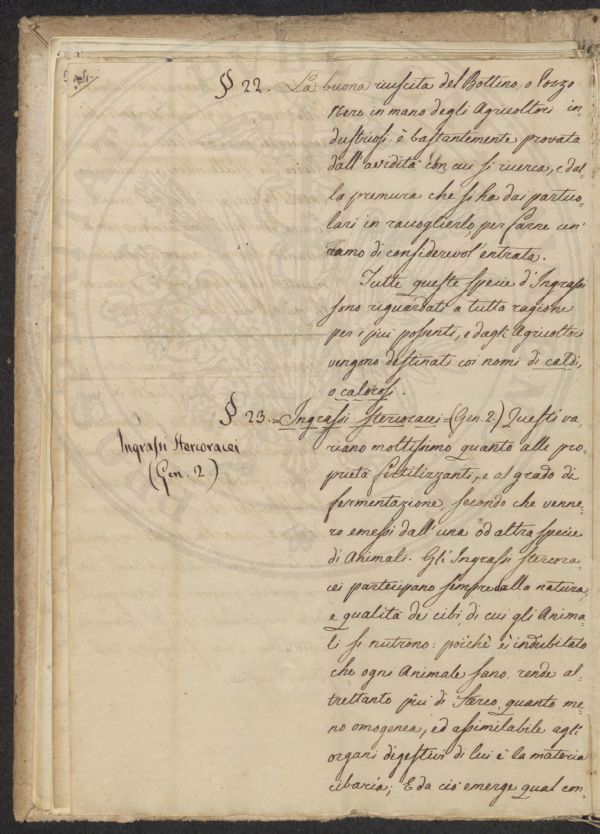 § 22. La buona riuscita del Bottino, o Pozzo
nero in mano degli Agricoltori in-
dustriosi è bastantemente provata
dall'avidità con cui si ricerca, e dal-
la premura che si ha dai partico-
lari in raccoglierlo, per farne un
ramo di considerevol'entrata.
Tutte queste specie d'Ingrassi
sono riguardati a tutta ragione
per i più possenti, e dagli Agricoltori
vengono destinati coi nomi di caldi,
o calorosi.
§ 23. Ingrassi stercoracei = (Gen. 2) Questi va-
Ingrassi Stercoracei
(Gen. 2)
riano moltissimo quanto alle pro-
prietà fertilizzanti, e al grado di
fermentazione, secondo che venne-
ro emessi dall'una od altra specie
di Animali. Gl'Ingrassi stercora-
cei partecipano sempre alla natura,
e qualità dei cibi, di cui gli Anima-
li si nutrono: poichè è indubitato
che ogni Animale sano, rende al-
trettanto più di sterco, quanto me-
no omogenea, ed assimilabile agli
organi digestivi di lui è la materia
cibaria; E da ciò emerge qual con-